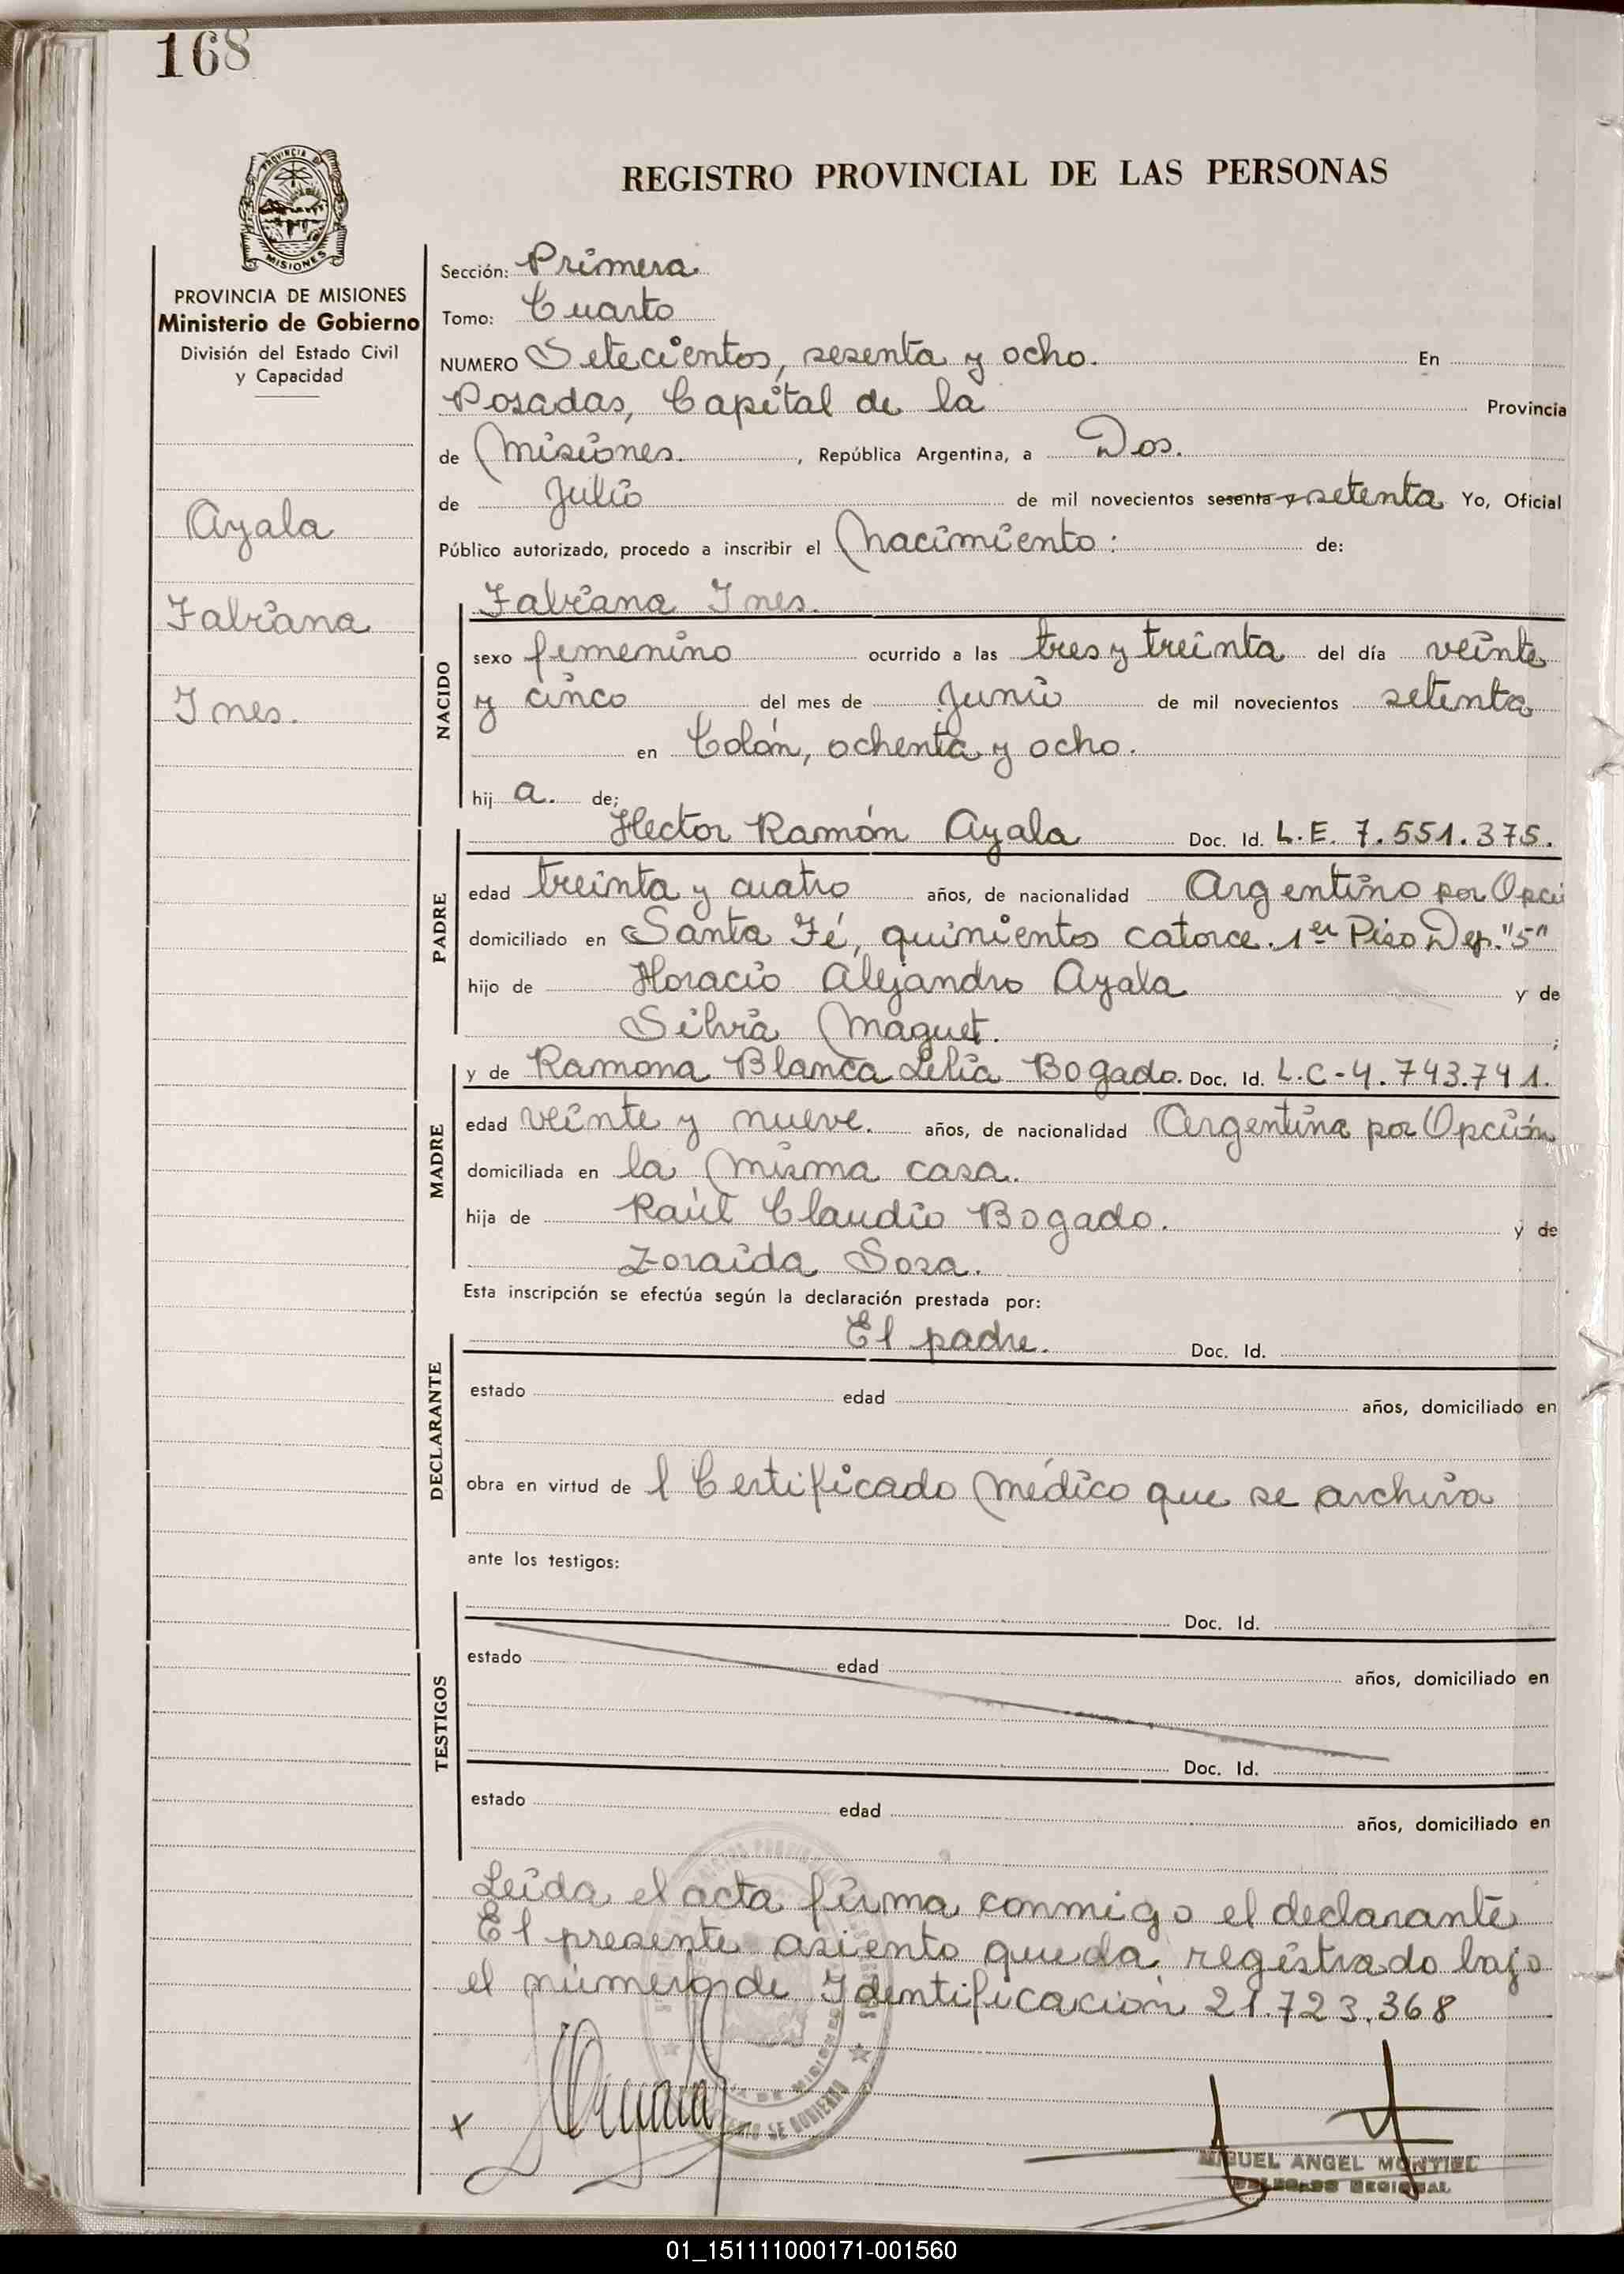 168
PROVINCIA DE MISIONES
REGISTRO PROVINCIAL DE LAS PERSONAS
PROVINCIA DE MISIONES
Ministerio de Gobierno
División del Estado Civil
y Capacidad
Ayala
Fabiana
Ines.
Sección: Primera
Tomo: Cuarto
NUMERO Setecientos, sesenta y ocho. En
Posadas, Capital de la Provincia
de Misiones. , República Argentina, a Dos.
de Julio de mil novecientos sesenta y setenta Yo, Oficial
Público autorizado, procedo a inscribir el Nacimiento: de:
NACIDO
Fabiana Ines.
sexo femenino ocurrido a las tres y treinta del día veinte
y cinco del mes de Junio de mil novecientos setenta
en Colón, ochenta y ocho.
hij a. de;
PADRE
Hector Ramón Ayala Doc. Id. L.E. 7.551.375.
edad treinta y cuatro años, de nacionalidad Argentino por Opci
domiciliado en Santa Fé, quinientos catorce. 1er Piso Dep. "5"
hijo de Horacio Alejandro Ayala y de
Silvia Maguet. ;
MADRE
y de Ramona Blanca Lelia Bogado. Doc. Id. L.C-4.743.741.
edad veinte y nueve. años, de nacionalidad Argentina por Opción
domiciliada en la misma casa.
hija de Raúl Claudio Bogado. y de
Zoraida Sosa.
Esta inscripción se efectúa según la declaración prestada por:
DECLARANTE
El padre. Doc. Id.
estado edad años, domiciliado en
obra en virtud de l Certificado Médico que se archiva
ante los testigos:
TESTIGOS
Doc. Id.
estado edad años, domiciliado en
Doc. Id.
estado edad años, domiciliado en
Leida el acta firma conmigo el declarante
El presente asiento queda registrado bajo
el número de Identificación 21.723.368
x Ayala
MIGUEL ANGEL MONTIEL
DELEGADO REGIONAL
01_151111000171-001560